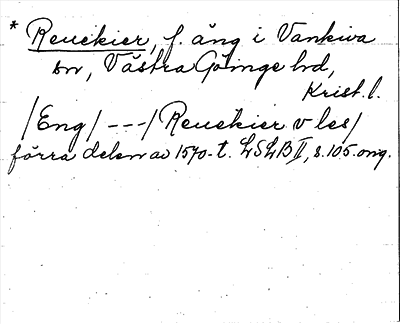 * Reuekier, f. äng i Vankiva
sn, Västra Göinge hd,
Krist. l.
/Eng/ ---/Reuekier v les/
förra delen av 1570-t. LSLB II, s. 105. omg.